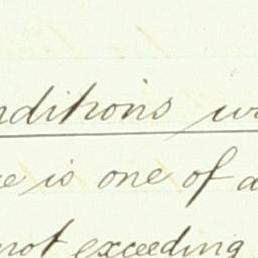 nditions w
e is one of a
not exceeding